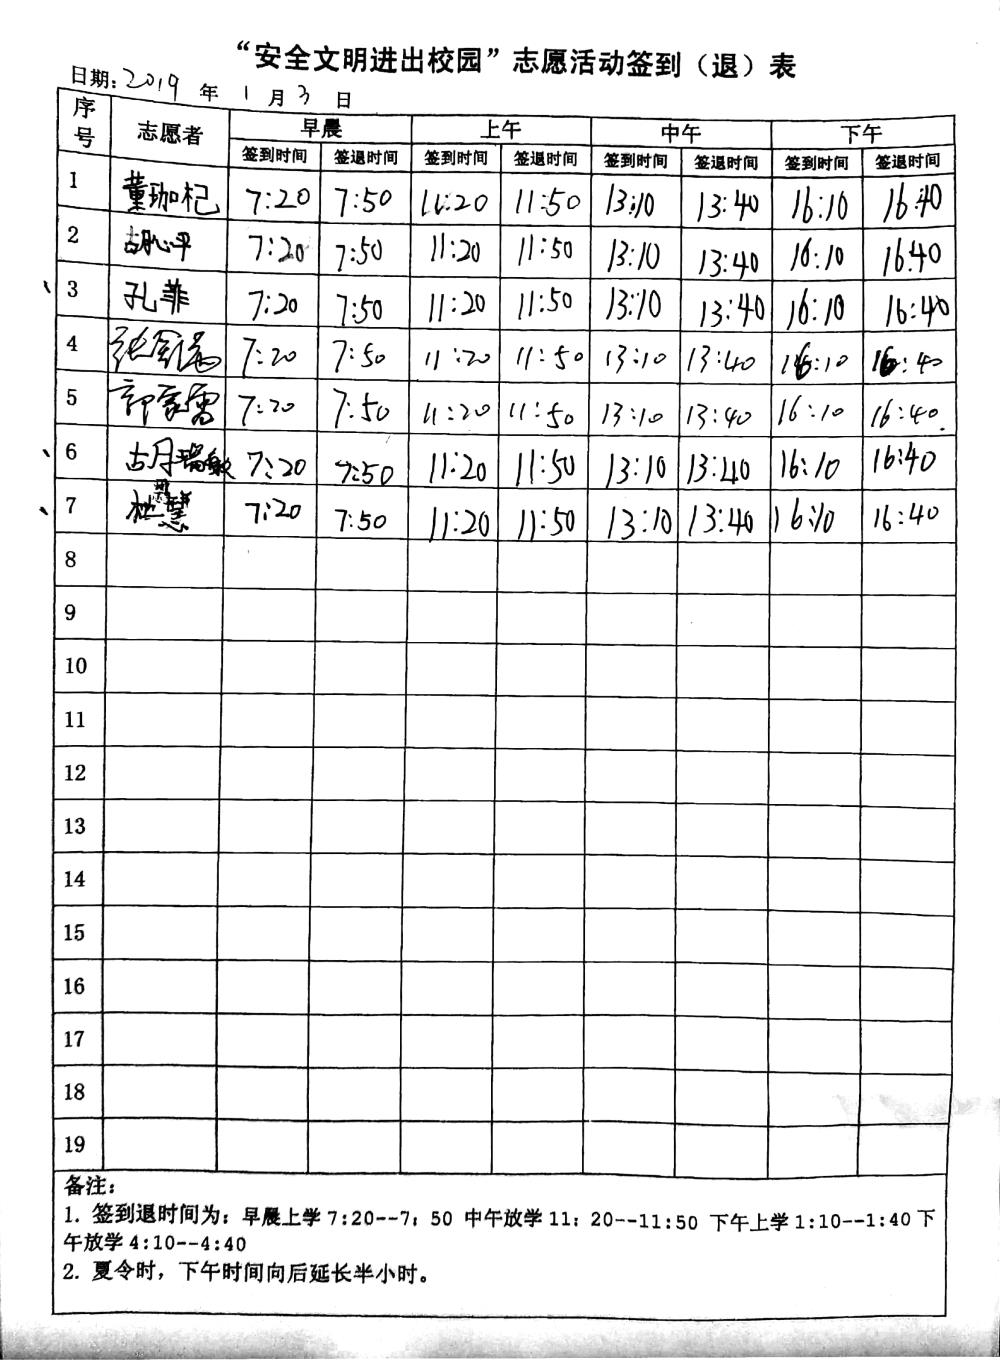 “安全文明进出校园”志愿活动签到（退）表
日期: 2019 年 1 月 3 日
序号 志愿者 早晨 上午 中午 下午
签到时间 签退时间 签到时间 签退时间 签到时间 签退时间 签到时间 签退时间
1 董珈杞 7:20 7:50 11:20 11:50 13:10 13:40 16:10 16:40
2 胡心平 7:20 7:50 11:20 11:50 13:10 13:40 16:10 16:40
3 孔菲 7:20 7:50 11:20 11:50 13:10 13:40 16:10 16:40
4 7:20 7:50 11:20 11:50 13:10 13:40 16:10 16:40
5 7:20 7:50 11:20 11:50 13:10 13:40 16:10 16:40
6 胡瑞敏 7:20 7:50 11:20 11:50 13:10 13:40 16:10 16:40
7 7:20 7:50 11:20 11:50 13:10 13:40 16:10 16:40
8
9
10
11
12
13
14
15
16
17
18
19
备注：
1. 签到退时间为：早晨上学 7:20--7：50 中午放学 11：20--11:50 下午上学 1:10--1:40 下
午放学 4:10--4:40
2. 夏令时，下午时间向后延长半小时。